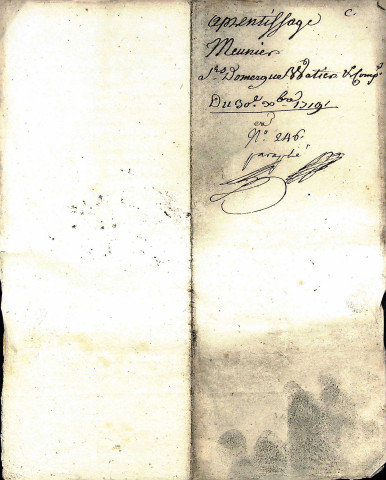 C.
aprentissage
Meunier
Srs Domergue Watier & Comp.
Du 30e xbre 1719
N.o 246
paraphé